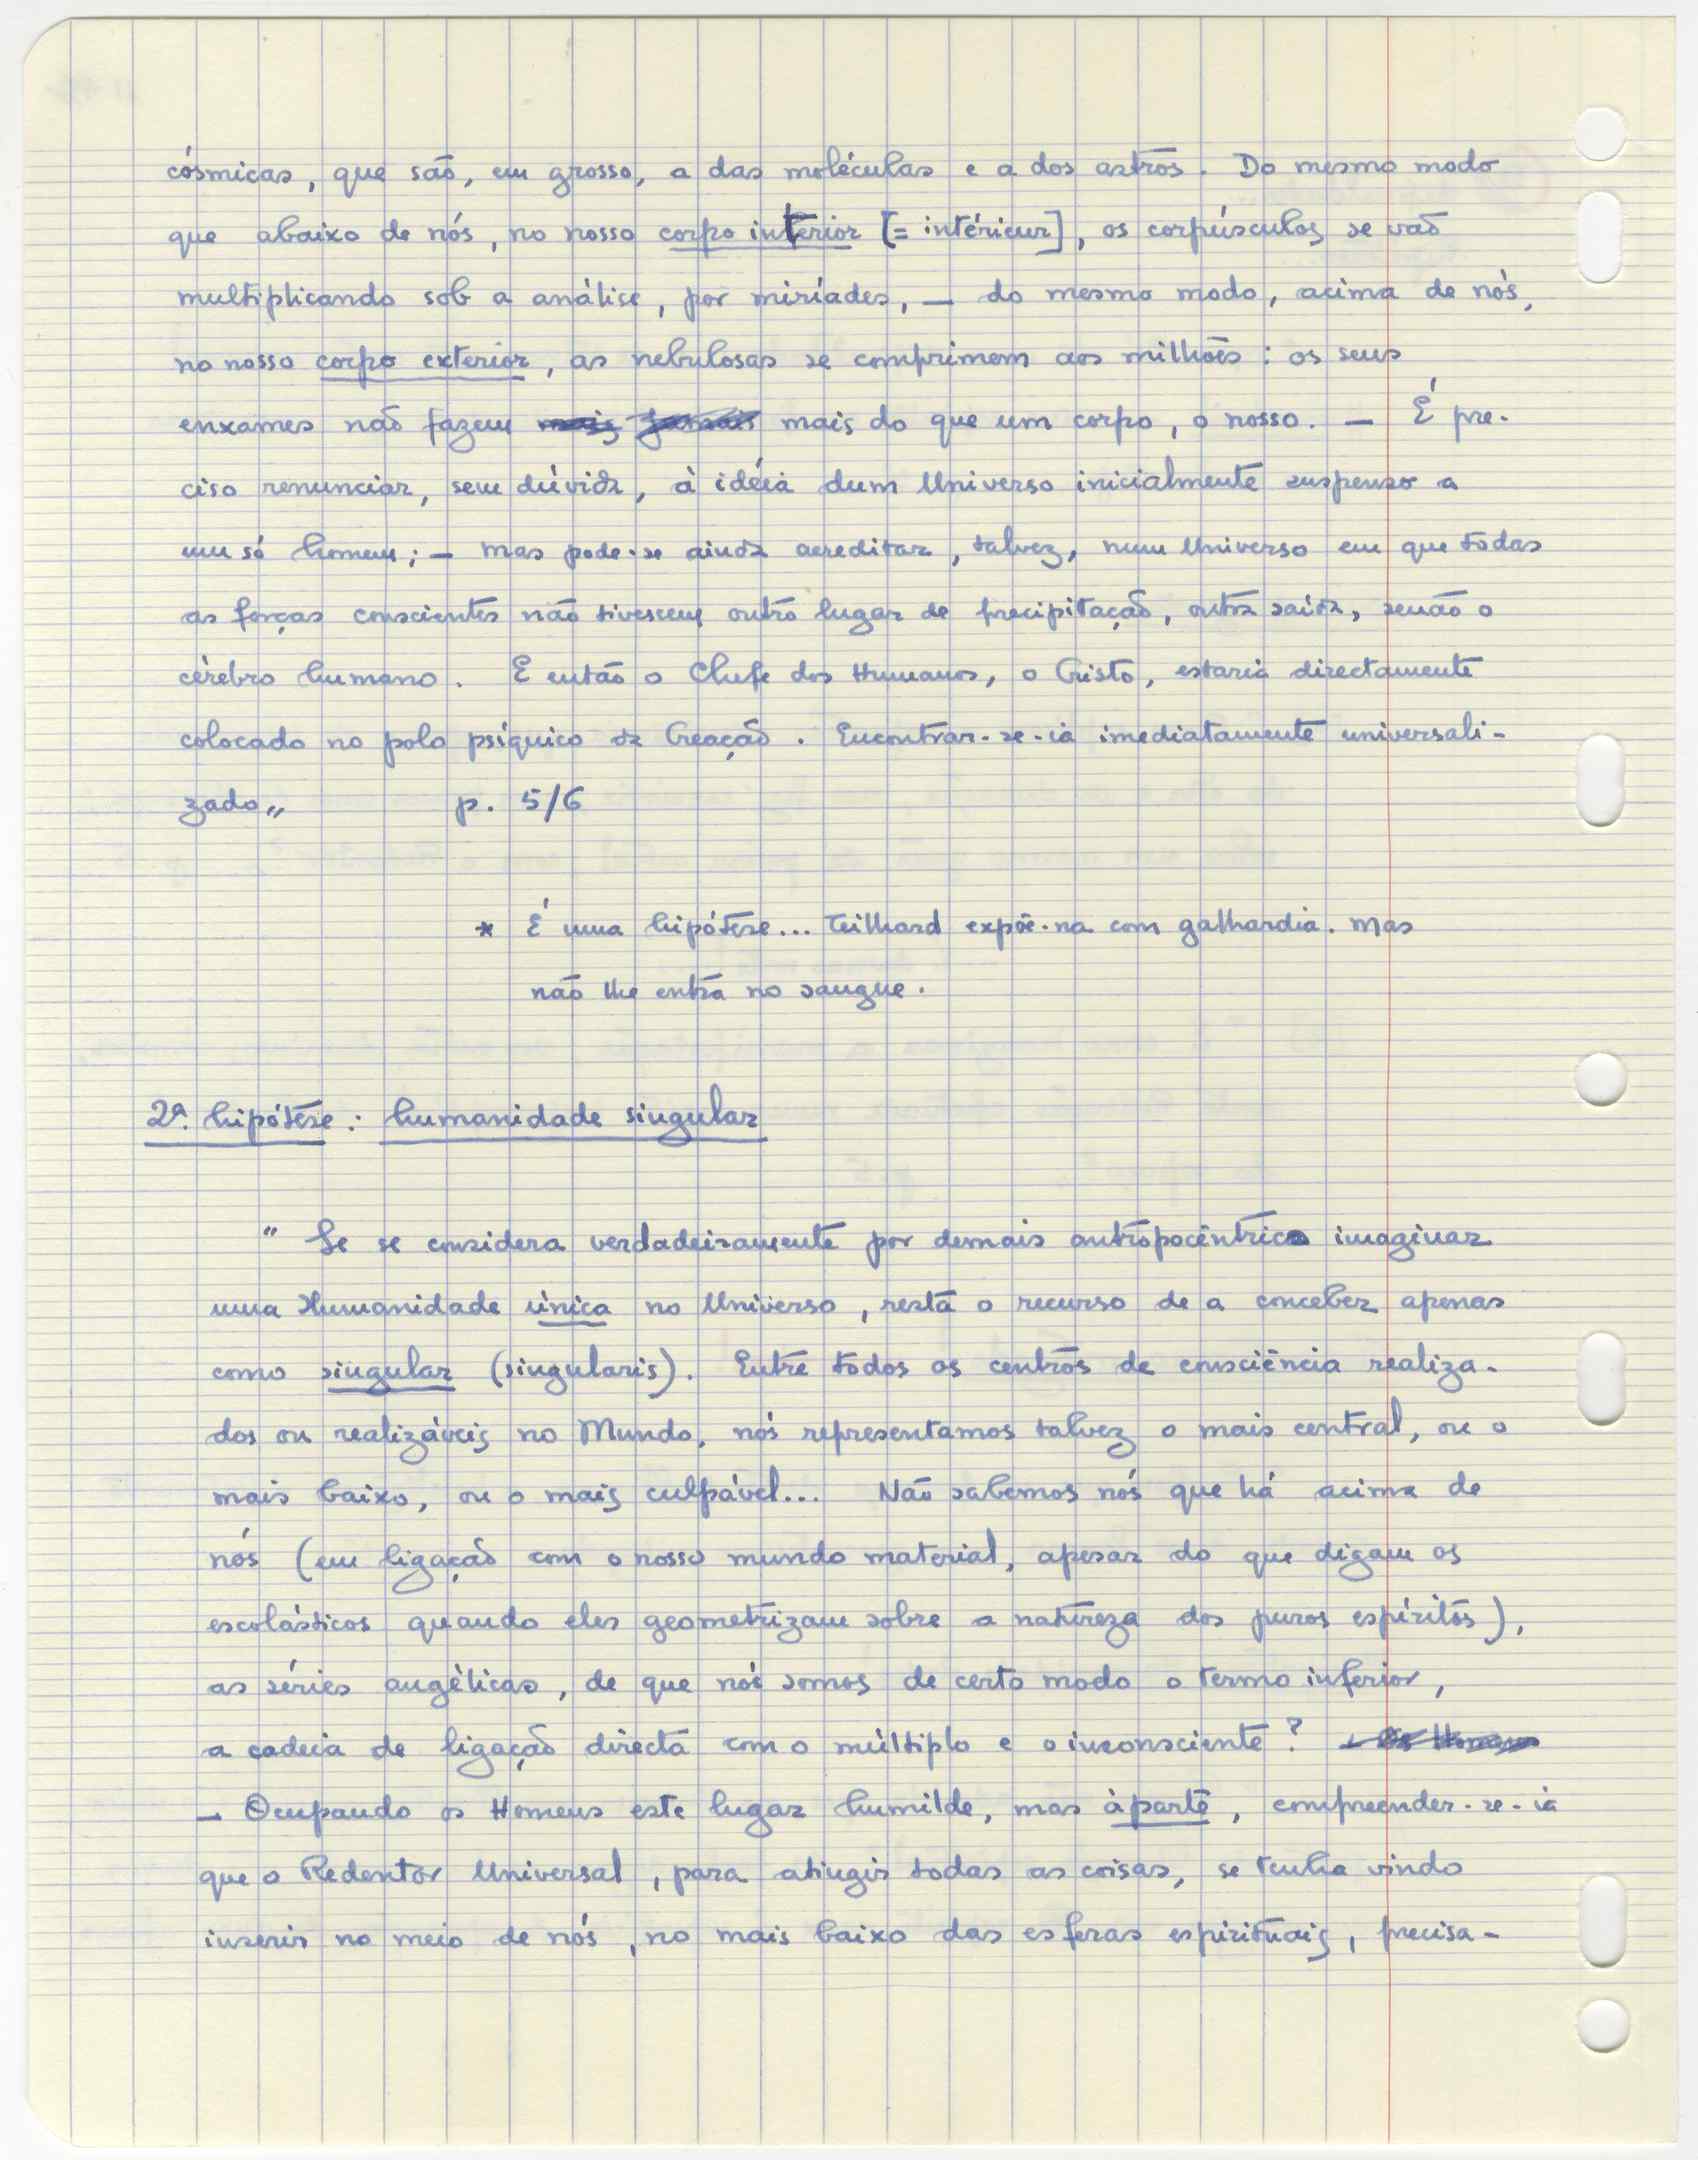 cósmicas, que são, em grosso, a das moléculas e a dos astros. Do mesmo modo
que abaixo de nós, no nosso corpo interior [= intérieur], os corpúsculos se vão
multiplicando sob a análise, por miríades, — do mesmo modo, acima de nós,
no nosso corpo exterior, as nebulosas se comprimem aos milhões: os seus
enxames não fazem mais jamais mais do que um corpo, o nosso. — É pre-
ciso renunciar, sem dúvida, à idéia dum Universo inicialmente suspenso a
um só homem; — mas pode-se ainda acreditar, talvez, num Universo em que todas
as forças conscientes não tivessem outro lugar de precipitação, outra saída, senão o
cérebro humano. E então o Chefe dos Humanos, o Cristo, estaria directamente
colocado no polo psíquico da Creação. Encontrar-se-ia imediatamente universali-
zado„ p. 5/6
* É uma hipótese... Teilhard expõe-na com galhardia. Mas
não lhe entra no sangue.
2ª. hipótese: humanidade singular
" Se se considera verdadeiramente por demais antropocêntrico imaginar
uma Humanidade única no Universo, resta o recurso de a conceber apenas
como singular (singularis). Entre todos os centros de consciência realiza-
dos ou realizáveis no Mundo, nós representamos talvez o mais central, ou o
mais baixo, ou o mais culpável... Não sabemos nós que há acima de
nós (em ligação com o nosso mundo material, apesar do que digam os
escolásticos quando eles geometrizam sobre a natureza dos puros espíritos),
as séries angélicas, de que nós somos de certo modo o termo inferior,
a cadeia de ligação directa com o múltiplo e o inconsciente? — Os Homens
— Ocupando os Homens este lugar humilde, mas àparte, compreender-se-ia
que o Redentor Universal, para atingir todas as coisas, se tenha vindo
inserir no meio de nós, no mais baixo das esferas espirituais, precisa-